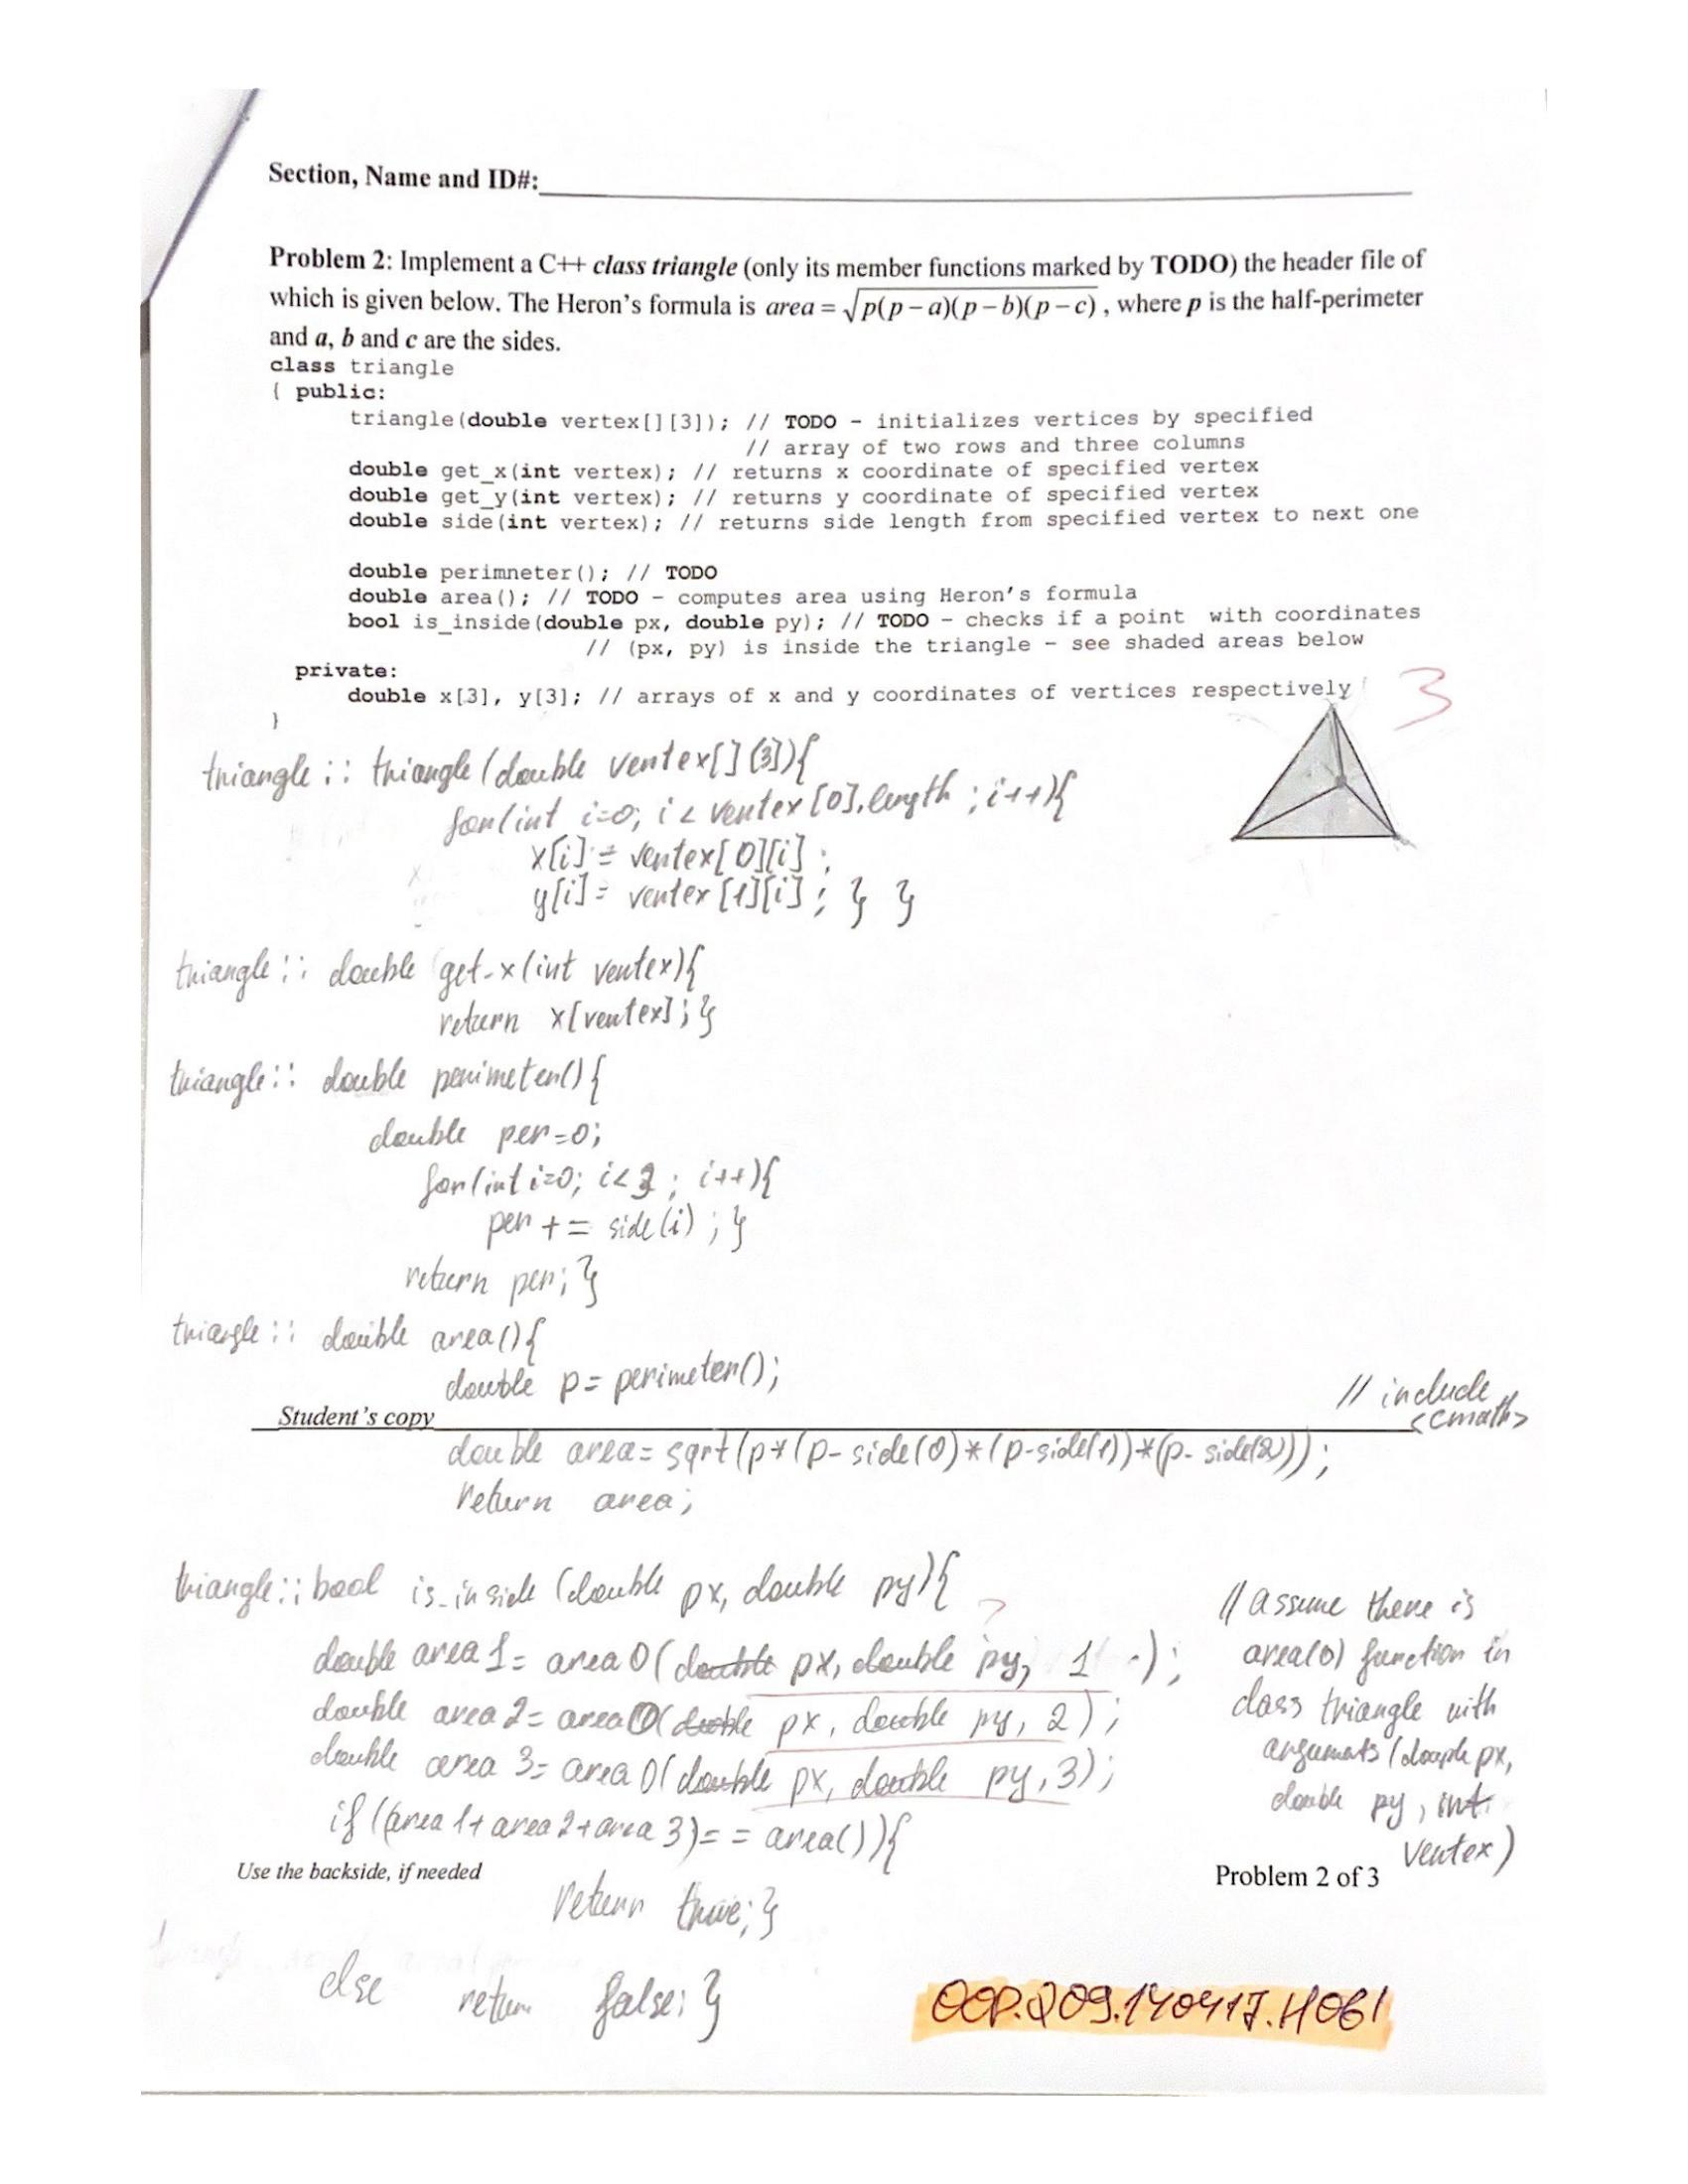 Section, Name and ID#:
Problem 2: Implement a C++ class triangle (only its member functions marked by TODO) the header file of
which is given below. The Heron's formula is area = √p(p − a)(p − b)(p − c) , where p is the half-perimeter
and a, b and c are the sides.
class triangle
{ public:
triangle(double vertex[][3]); // TODO - initializes vertices by specified
// array of two rows and three columns
double get_x(int vertex); // returns x coordinate of specified vertex
double get_y(int vertex); // returns y coordinate of specified vertex
double side(int vertex); // returns side length from specified vertex to next one
double perimneter(); // TODO
double area(); // TODO - computes area using Heron's formula
bool is_inside(double px, double py); // TODO - checks if a point with coordinates
// (px, py) is inside the triangle - see shaded areas below
private:
double x[3], y[3]; // arrays of x and y coordinates of vertices respectively
}
3
triangle :: triangle (double vertex[](3]){
for(int i=0; i < vertex [0].length ; i++){
x[i] = vertex[0][i] ;
y[i] = vertex [1][i] ; } }
triangle :: double get_x(int vertex){
return x[vertex] ; }
triangle :: double perimeter(){
double per=0;
for(int i=0; i<3 ; i++){
per += side(i) ; }
return per; }
triangle :: double area(){
double p = perimeter();
// include
<cmath>
Student's copy
double area= sqrt(p*(p- side(0)*(p-side(1))*(p- side(2)));
return area;
triangle :: bool is_inside (double px, double py){
?
double area 1= area0(double px, double py, 1 );
double area 2= area0(double px, double py, 2);
double area 3= area0(double px, double py, 3);
if ((area 1+ area 2+ area 3)= = area()){
// assume there is
area(0) function in
class triangle with
arguments (double px,
double py, int
vertex)
Use the backside, if needed
Problem 2 of 3
return true; }
else return false; }
OOP.Q09.140417.H061